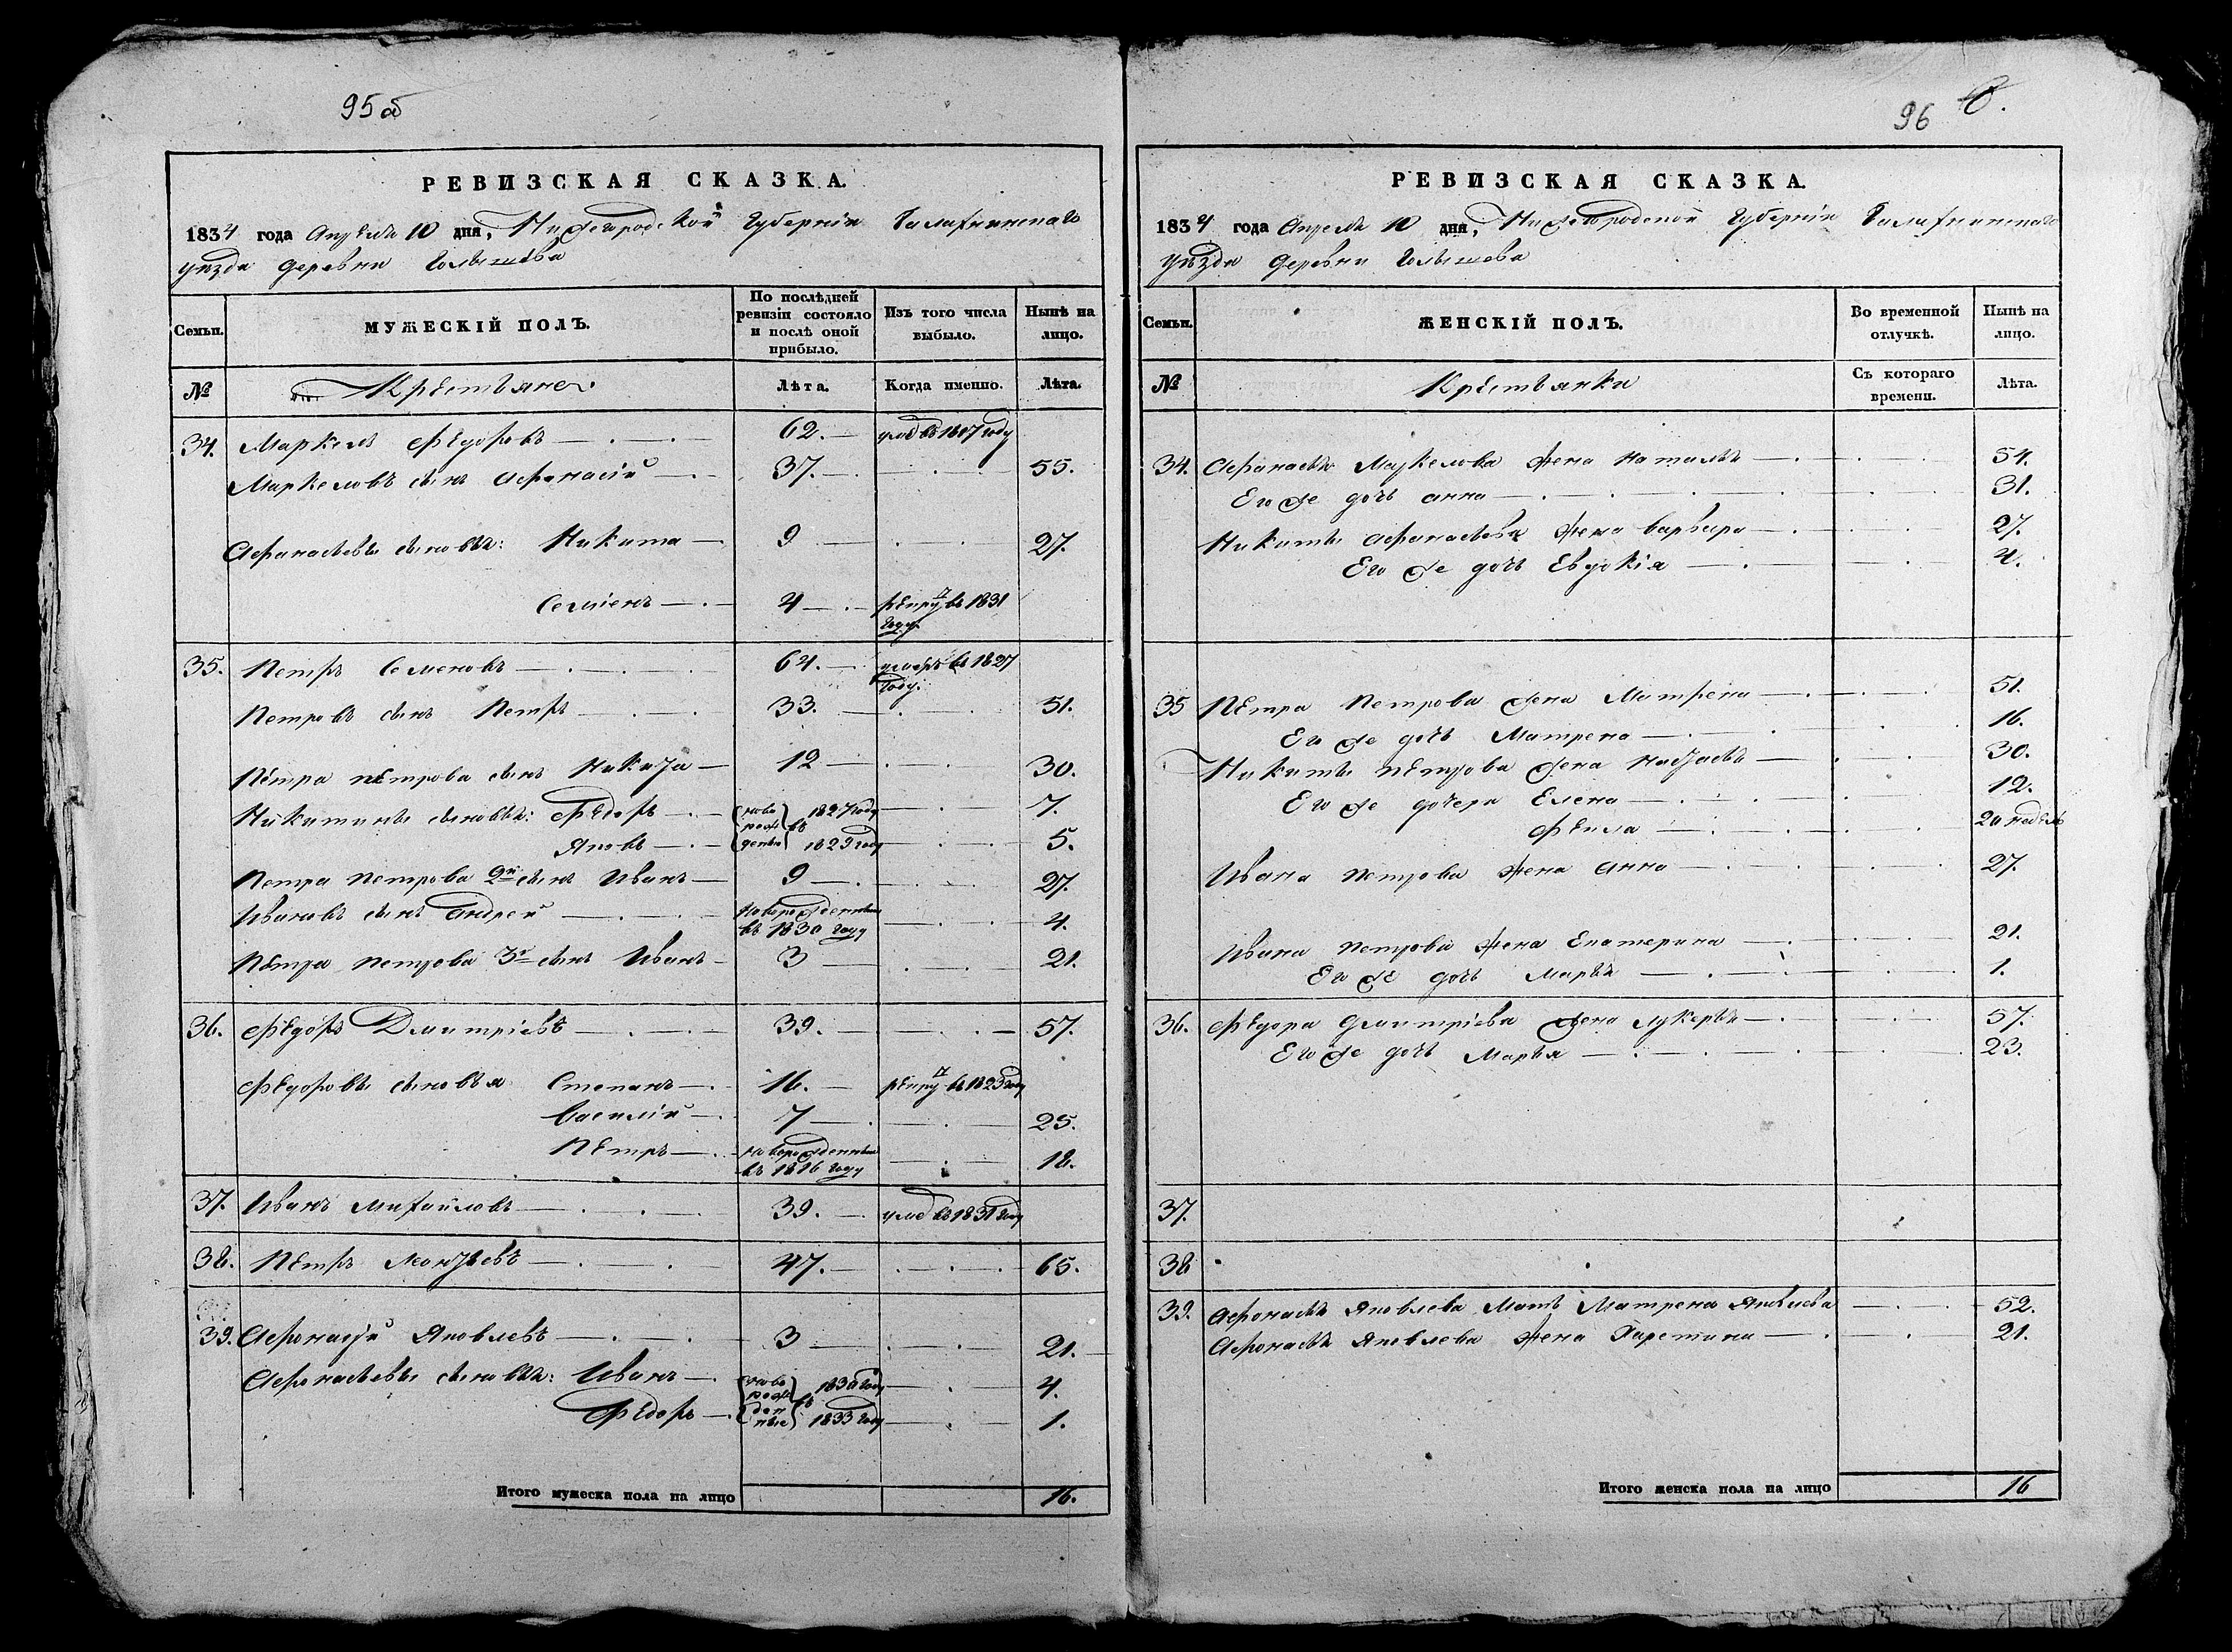 95об
РЕВИЗСКАЯ СКАЗКА.
1834 года Апреля 10 дня, Нижегородской Губерніи Балахнинскаго
уѣзда деревни Голышева
Семьи. МУЖЕСКІЙ ПОЛЪ. По послѣдней ревизіи состояло и послѣ оной прибыло. Изъ того числа выбыло. Нынѣ на лицо.
№ Крестьяне. Лѣта. Когда именно. Лѣта.
34. Маркелъ Федоровъ 62. въ 1817 году
Маркеловъ сынъ Афанасій 37. 55.
Афанасьевы сыновья: Никита 9 27.
Семіенъ 4 рекру въ 1831 году.
35. Петръ Семеновъ 64. умеръ въ 1827 году.
Петровъ сынъ Петръ 33. 51.
Петра Петрова сынъ Никита 12 30.
Никитины сыновья: Федоръ новорожденные въ 1827 году 7.
Яковъ 1829 году 5.
Петра Петрова 2й сынъ Иванъ 9 27.
Ивановъ сынъ Андрей новорожденный въ 1830 году 4.
Петра Петрова 3й сынъ Иванъ 3 21.
36. Федоръ Дмитріевъ 39. 57.
Федоровы сыновья Степанъ 16. рекру въ 1823 году
Василій 7 25.
Петръ новорожденный въ 1816 году 18.
37. Иванъ Михайловъ 39. въ 1831 году
38. Петръ Леонтьевъ 47. 65.
39. Афонасій Яковлевъ 3 21.
Афонасьевы сыновья: Иванъ новорожденные въ 1830 году 4.
Федоръ 1833 году 1.
Итого мужеска пола на лицо 16.
96
РЕВИЗСКАЯ СКАЗКА.
1834 года Апреля 10 дня, Нижегородской Губерніи Балахнинскаго
уѣзда деревни Голышева
Семьи. ЖЕНСКІЙ ПОЛЪ. Во временной отлучкѣ. Нынѣ на лицо.
№ Крестьянки Съ котораго времени. Лѣта.
34. Афанасья Маркелова жена Наталья 54.
Его же дочь Анна 31.
Никиты Афанасьева жена Варвара 27.
Его же дочь Евдокія 4.
35 Петра Петрова жена Матрена 51.
Его же дочь Матрена 16.
Никиты Петрова жена 30.
Его же дочери Елена 12.
Фекла 20 недель
Ивана Петрова жена Анна 27.
Ивана Петрова жена Екатерина 21.
Его же дочь Марья 1.
36. Федора Дмитріева жена Лукерья 57.
Его же дочь Марья 23.
37.
38
39. Афонасья Яковлева Мать Матрена Яковлева 52.
Афонасья Яковлева жена Харетина 21.
Итого женска пола на лицо 16